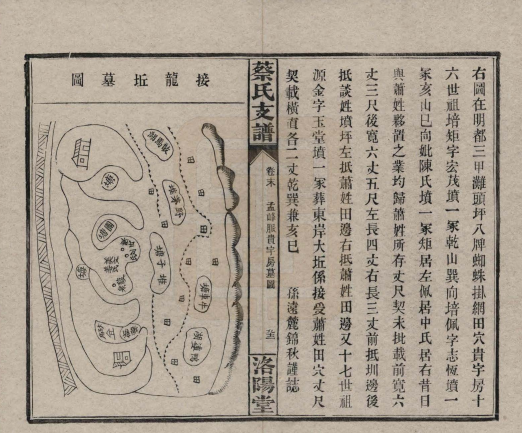 右圖在明都三甲灘頭坪八牌蜘蛛掛網田穴貴字房十
六世祖培矩字宏茂墳一冢乾山巽向培佩字志恆墳一
冢亥山巳向妣陳氏墳一冢矩居左佩居中氏居右昔日
與蕭姓夥置之業均歸蕭姓所存丈尺契未批載前寬六
丈三尺後寬六丈五尺左長四丈右長三丈前抵圳邊後
抵談姓墳坪左抵蕭姓田邊右抵蕭姓田邊又十七世祖
源金字玉堂墳一冢葬東岸大坵係接受蕭姓田穴丈尺
契載橫直各二丈乾巽兼亥巳
孫遠麓錦秋謹誌
蔡氏支譜
卷末
孟峰脈貴字房墓圖
洛陽堂
接龍坵墓圖
田
田
田
田
田
田